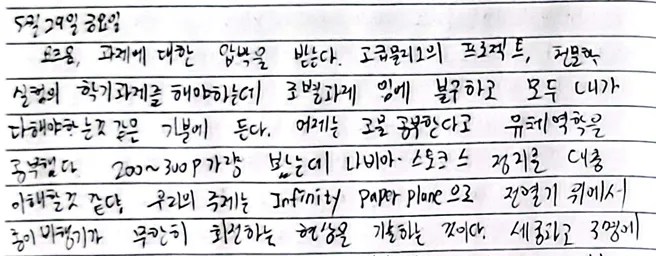 5월 29일 금요일
요즘, 과제에 대한 압박을 받는다. 고급물리2의 프로젝트, 천문학
실험의 학기과제를 해야하는데 조별과제 임에 불구하고 모두 내가
다해야하는것 같은 기분에 든다. 어제는 조금 공부한다고 유체역학을
공부했다. 200~300p가량 봤는데 나비아-스토크스 정리를 대충
이해할것 같다. 우리의 주제는 Infinity paper plane으로 전열기 위에서
종이비행기가 무한히 회전하는 현상을 기술하는 것이다. 세종과고 3명에